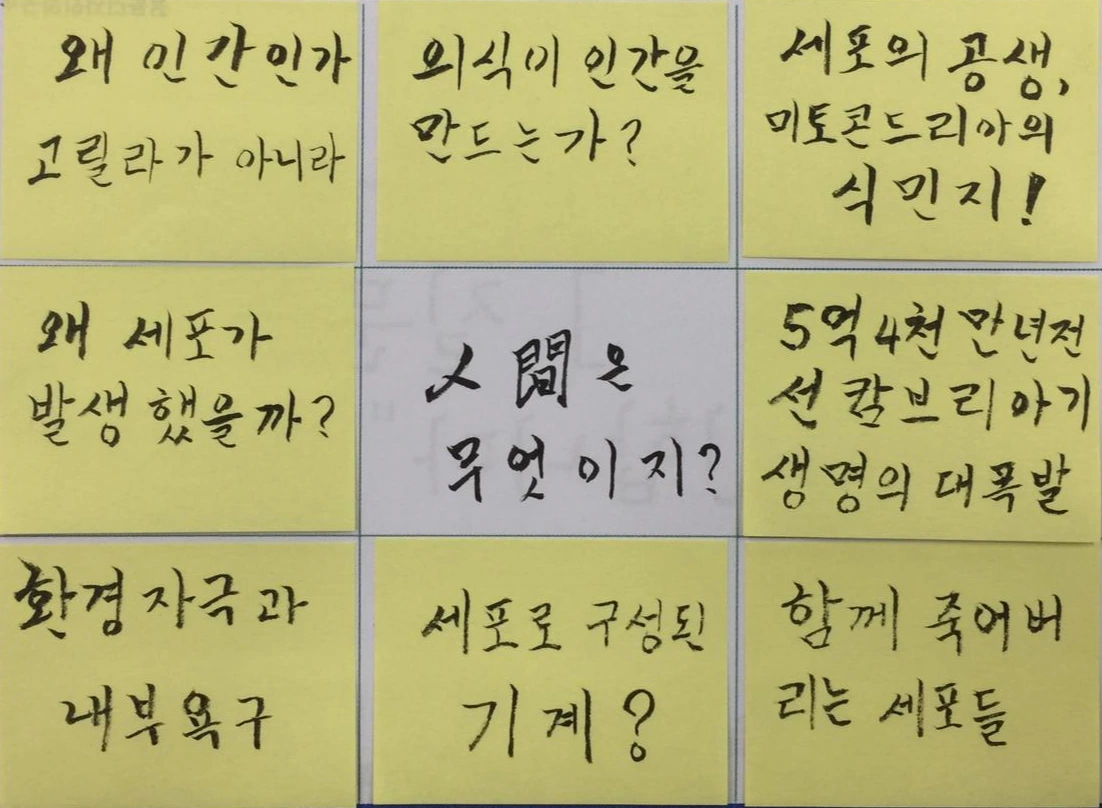 왜 인간인가
고릴라가 아니라
의식이 인간을
만드는가?
세포의 공생,
미토콘드리아의
식민지!
왜 세포가
발생했을까?
人間은
무엇이지?
5억4천만년전
선캄브리아기
생명의 대폭발
환경자극과
내부욕구
세포로 구성된
기계?
함께 죽어버
리는 세포들